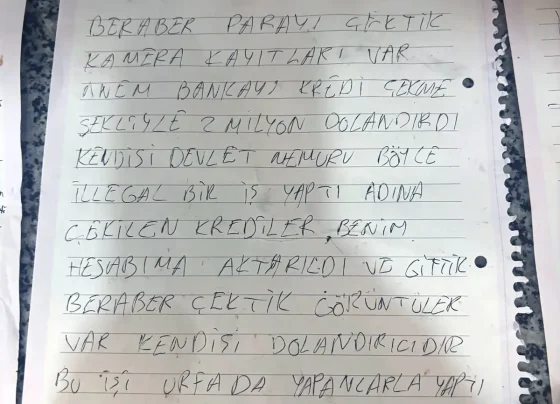 BERABER PARAYI ÇEKTİK
KAMERA KAYITLARI VAR
ANEM BANKAYI KREDİ ÇEKME
ŞEKLİYLE 2 MİLYON DOLANDIRDI
KENDİSİ DEVLET MEMURU BÖYLE
İLLEGAL BİR İŞ YAPTI ADINA
ÇEKİLEN KREDİLER, BENİM
HESABIMA AKTARILDI VE GİTTİK
BERABER ÇEKTİK GÖRÜNTÜLER
VAR KENDİSİ DOLANDIRICIDIR
BU İŞİ URFADA YAPANLARLA YAPTI